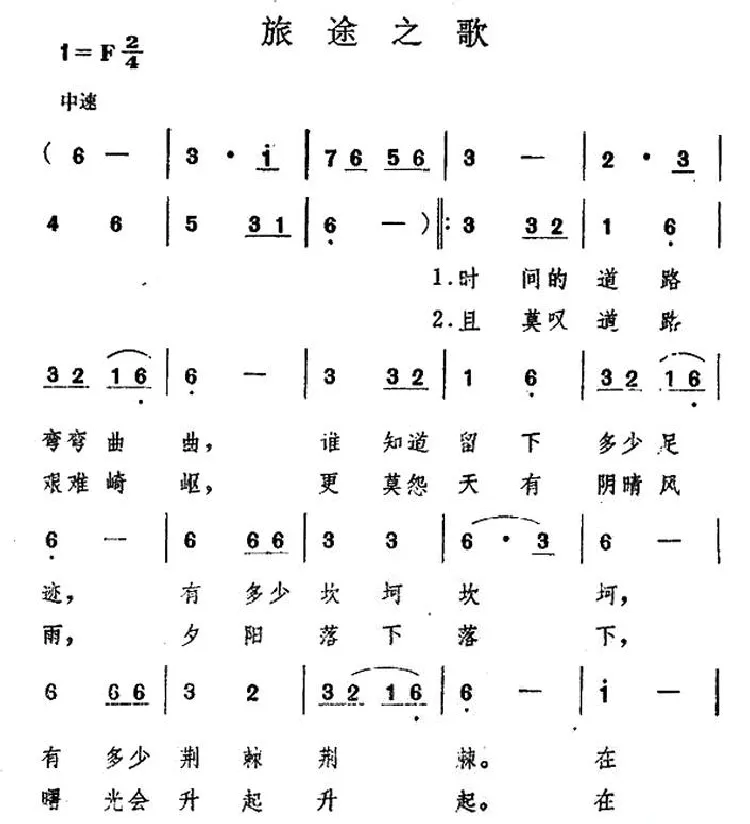 旅途之歌
1=F 2/4
中速
( 6 — | 3 · i | 7 6 5 6 | 3 — | 2 · 3 |
4 6 | 5 3 1 | 6 — ) ‖: 3 3 2 | 1 6 |
1.时 间的 道 路
2.且 莫叹 道 路
3 2 1 6 | 6 — | 3 3 2 | 1 6 | 3 2 1 6 |
弯弯曲 曲, 谁 知道 留 下 多少足
艰难崎 岖, 更 莫怨 天 有 阴晴风
6 — | 6 6 6 | 3 3 | 6 · 3 | 6 — |
迹, 有 多少 坎 坷 坎 坷,
雨, 夕 阳 落 下 落 下,
6 6 6 | 3 2 | 3 2 1 6 | 6 — | i — |
有 多少 荆 棘 荆 棘。 在
曙 光会 升 起 升 起。 在